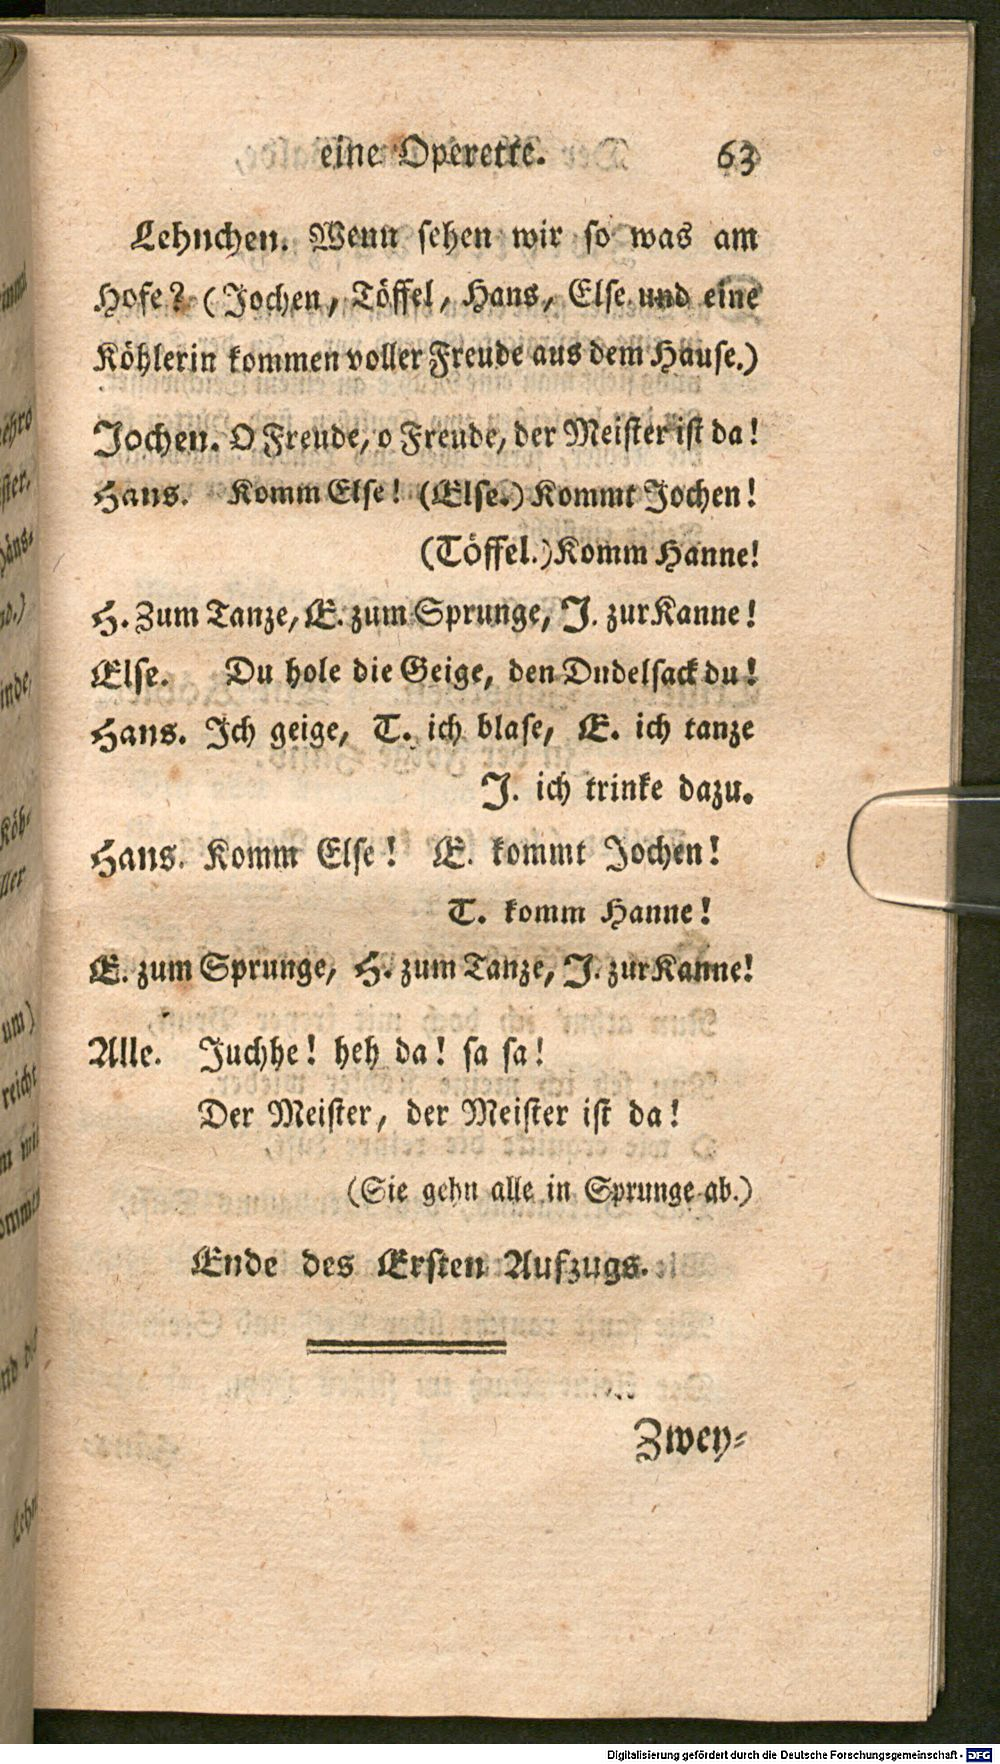 eine Operette. 63
Lehnchen. Wenn sehen wir so was am
Hofe? (Jochen, Töffel, Hans, Else und eine
Köhlerin kommen voller Freude aus dem Hause.)
Jochen. O Freude, o Freude, der Meister ist da!
Hans. Komm Else! (Else.) Kommt Jochen!
(Töffel.) Komm Hanne!
H. Zum Tanze, E. zum Sprunge, J. zur Kanne!
Else. Du hole die Geige, den Dudelsack du!
Hans. Ich geige, T. ich blase, E. ich tanze
J. ich trinke dazu.
Hans. Komm Else! E. kommt Jochen!
T. komm Hanne!
E. zum Sprunge, H. zum Tanze, J. zur Kanne!
Alle. Juchhe! heh da! sa sa!
Der Meister, der Meister ist da!
(Sie gehn alle in Sprunge ab.)
Ende des Ersten Aufzugs.
Zwey-
Digitalisierung gefördert durch die Deutsche Forschungsgemeinschaft - DFG